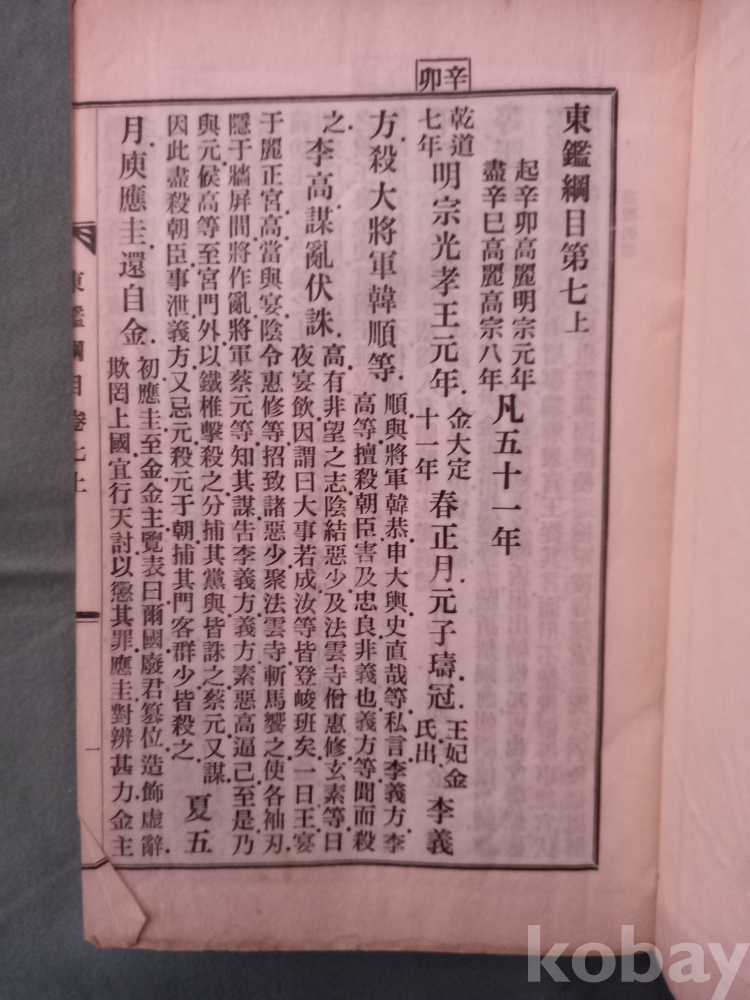 辛卯
東鑑綱目第七上
起辛卯高麗明宗元年
盡辛巳高麗高宗八年
凡五十一年
乾道
七年
明宗光孝王元年
金大定
十一年
春正月元子璹冠
王妃金
氏出
李義
方殺大將軍韓順等
順與將軍韓恭申大與史直哉等私言李義方李
高等擅殺朝臣害及忠良非義也義方等聞而殺
之
李高謀亂伏誅
高有非望之志陰結惡少及法雲寺僧惠修玄素等日
夜宴飲因謂曰大事若成汝等皆登峻班矣一日王宴
于麗正宮高當與宴陰令惠修等招致諸惡少聚法雲寺斬馬饗之使各袖刃
隱于牆屏間將作亂將軍蔡元等知其謀告李義方義方素惡高逼己至是乃
與元候高等至宮門外以鐵椎擊殺之分捕其黨與皆誅之蔡元又謀
因此盡殺朝臣事泄義方又忌元殺元于朝捕其門客群少皆殺之
夏五
月庾應圭還自金
初應圭至金金主覽表曰爾國廢君篡位造飾虛辭
欺罔上國宜行天討以懲其罪應圭對辨甚力金主
東鑑綱目卷七上
一
kobay